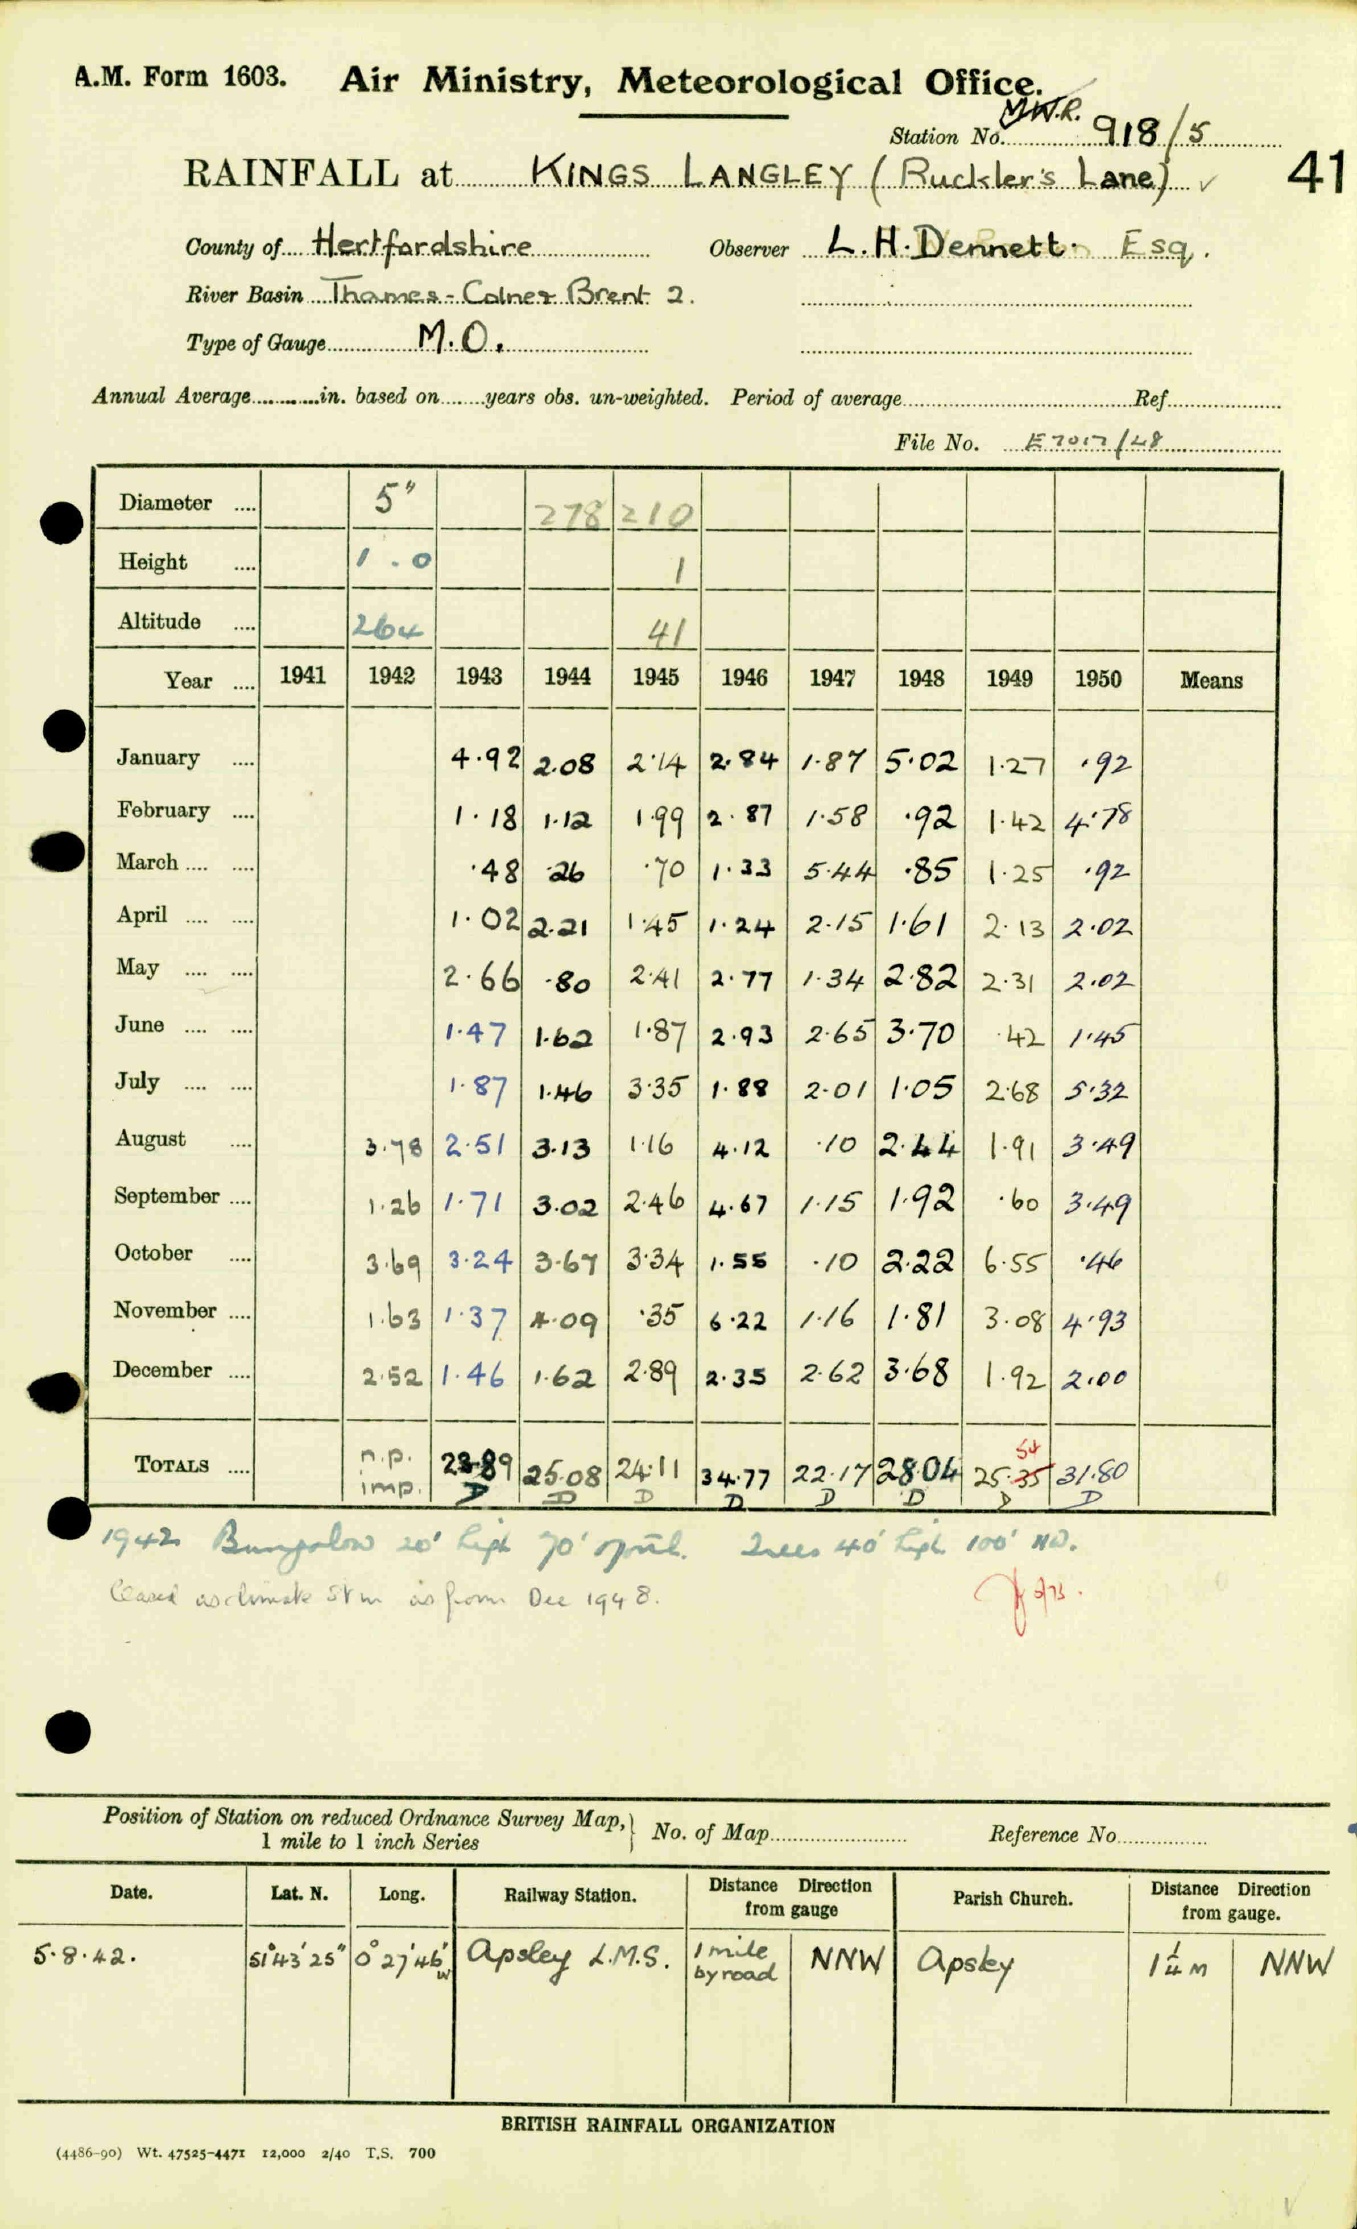 A.M. Form 1603. Air Ministry, Meteorological Office.
M.W.R.
Station No. 918/5
RAINFALL at KINGS LANGLEY (Ruckler's Lane) ✓ 41
County of Hertfordshire Observer L.H. Dennett. Esq.
River Basin Thames - Colne & Brent 2.
Type of Gauge M.O.
Annual Average in. based on years obs. un-weighted. Period of average Ref
File No. E7017/48
Diameter 5" 278 210
Height 1.0 1
Altitude 264 41
Year 1941 1942 1943 1944 1945 1946 1947 1948 1949 1950 Means
January 4.92 2.08 2.14 2.84 1.87 5.02 1.27 .92
February 1.18 1.12 1.99 2.87 1.58 .92 1.42 4.78
March .48 .26 .70 1.33 5.44 .85 1.25 .92
April 1.02 2.21 1.45 1.24 2.15 1.61 2.13 2.02
May 2.66 .80 2.41 2.77 1.34 2.82 2.31 2.02
June 1.47 1.62 1.87 2.93 2.65 3.70 .42 1.45
July 1.87 1.46 3.35 1.88 2.01 1.05 2.68 5.32
August 3.78 2.51 3.13 1.16 4.12 .10 2.44 1.91 3.49
September 1.26 1.71 3.02 2.46 4.67 1.15 1.92 .60 3.49
October 3.69 3.24 3.67 3.34 1.55 .10 2.22 6.55 .46
November 1.63 1.37 4.09 .35 6.22 1.16 1.81 3.08 4.93
December 2.52 1.46 1.62 2.89 2.35 2.62 3.68 1.92 2.00
54
TOTALS n.p. imp. 23.89 25.08 24.11 34.77 22.17 28.04 25.35 31.80
D D D D D D D D
1942 Bungalow 20' high 70' Trees 40' high 100' NW.
Ceased as climate Stn as from Dec 1948.
Position of Station on reduced Ordnance Survey Map, No. of Map Reference No.
1 mile to 1 inch Series
Date. Lat. N. Long. Railway Station. Distance Direction from gauge Parish Church. Distance Direction from gauge.
5.8.42. 51°43'25" 0°27'46" W Apsley L.M.S. 1 mile by road NNW Apsley 1¼ m NNW
BRITISH RAINFALL ORGANIZATION
(4486-90) Wt. 47525-4471 12,000 2/40 T.S. 700